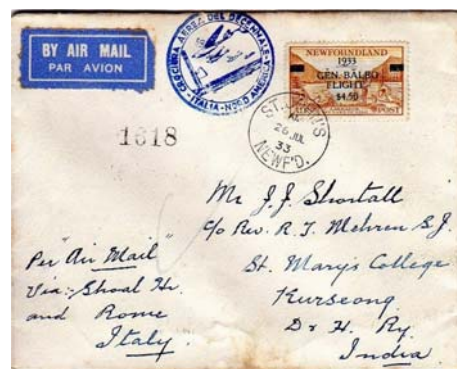 BY AIR MAIL
PAR AVION
CROCIERA AEREA DEL DECENNALE
ITALIA - NORD AMERICA
NEWFOUNDLAND
1933
GEN. BALBO
FLIGHT
$4.50
POST
ST. JOHN'S
26 JUL
33
NEWF'D.
1618
Mr J. J. Shortall
c/o Rev. R. J. Mehren S.J.
St. Mary's College
Kurseong
D & H. Ry.
India
Per "Air Mail"
Via:- Shoal Hr.
and Rome
Italy.